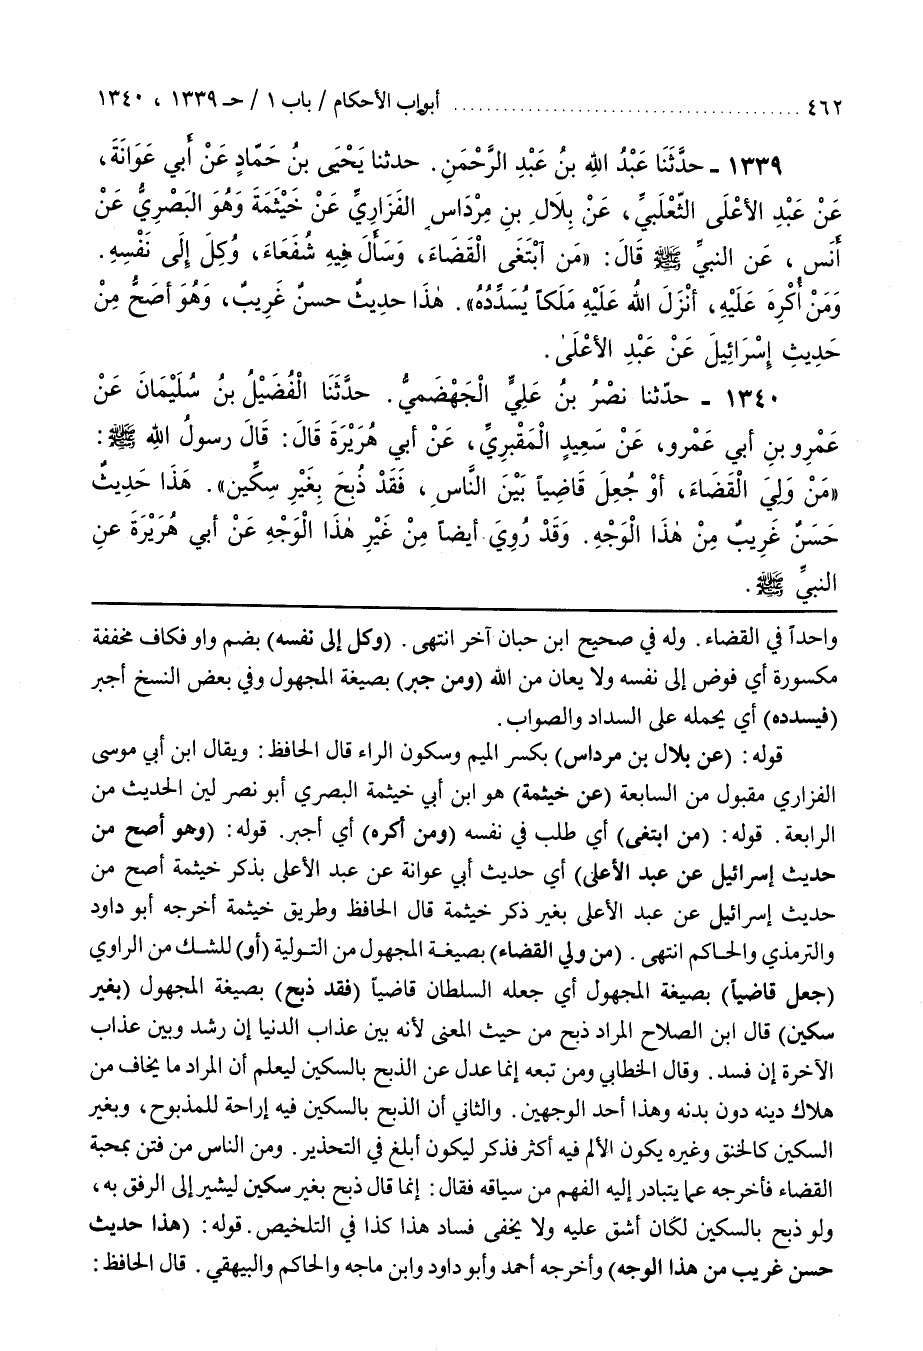 ٤٦٢ ........................................ أبواب الأحكام / باب ١ / حـ ١٣٣٩ ، ١٣٤٠
١٣٣٩ - حدَّثَنَا عَبْدُ الله بنُ عَبْدِ الرَّحْمَنِ. حدثنا يَحْيَى بنُ حَمَّادٍ عَنْ أَبي عَوَانَةَ،
عَنْ عَبْدِ الأعْلَى الثّعْلَبيِّ، عَنْ بِلَالِ بنِ مِرْدَاسٍ الفَزَارِيِّ عَنْ خَيْثمَةَ وَهُوَ البَصْرِيُّ عَنْ
أنَسٍ، عَن النبيِّ ﷺ قَالَ: «مَن آبْتَغَى الْقَضَاءَ، وَسَأَلَ فِيهِ شُفَعَاءَ، وُكِلَ إِلَى نَفْسِهِ.
وَمَنْ أُكْرِهَ عَلَيْهِ، أَنْزَلَ اللهُ عَلَيْهِ مَلَكاً يُسَدِّدُهُ». هٰذَا حديثٌ حسنٌ غَرِيبٌ، وَهُوَ أصَحُّ مِنْ
حَدِيثِ إِسْرَائِيلَ عَنْ عَبْدِ الأعْلَىٰ.
١٣٤٠ - حدّثنا نصْرُ بنُ عَلِيٍّ الْجَهْضَمِيُّ. حدَّثَنَا الْفُضَيْلُ بنُ سُلَيْمَانَ عَنْ
عَمْرِو بنِ أبي عَمْرٍو، عَنْ سَعِيدٍ الْمَقْبرِيِّ، عَنْ أبي هُرَيْرَةَ قَالَ: قَالَ رسولُ اللهِ ﷺ:
«مَنْ وَلِيَ الْقَضَاءَ، أوْ جُعِلَ قَاضِياً بَيْنَ النَّاسِ، فَقَدْ ذُبِحَ بِغَيْرِ سِكِّين». هَذَا حَدِيثٌ
حَسَنٌ غَرِيبٌ مِنْ هٰذَا الْوَجْهِ. وَقَدْ رُوِيَ أيضاً مِنْ غَيْرِ هٰذَا الْوَجْهِ عَنْ أبي هُرَيْرَةَ عنِ
النبيِّ ﷺ.
واحداً في القضاء. وله في صحيح ابن حبان آخر انتهى. (وكل إلى نفسه) بضم واو فكاف مخففة
مكسورة أي فوض إلى نفسه ولا يعان من الله (ومن جبر) بصيغة المجهول وفي بعض النسخ أجبر
(فيسدده) أي يحمله على السداد والصواب.
قوله: (عن بلال بن مرداس) بكسر الميم وسكون الراء قال الحافظ: ويقال ابن أبي موسى
الفزاري مقبول من السابعة (عن خيثمة) هو ابن أبي خيثمة البصري أبو نصر لين الحديث من
الرابعة. قوله: (من ابتغى) أي طلب في نفسه (ومن أكره) أي أجبر. قوله: (وهو أصح من
حديث إسرائيل عن عبد الأعلى) أي حديث أبي عوانة عن عبد الأعلى بذكر خيثمة أصح من
حديث إسرائيل عن عبد الأعلى بغير ذكر خيثمة قال الحافظ وطريق خيثمة أخرجه أبو داود
والترمذي والحاكم انتهى. (من ولي القضاء) بصيغة المجهول من التولية (أو) للشك من الراوي
(جعل قاضياً) بصيغة المجهول أي جعله السلطان قاضياً (فقد ذبح) بصيغة المجهول (بغير
سكين) قال ابن الصلاح المراد ذبح من حيث المعنى لأنه بين عذاب الدنيا إن رشد وبين عذاب
الآخرة إن فسد. وقال الخطابي ومن تبعه إنما عدل عن الذبح بالسكين ليعلم أن المراد ما يخاف من
هلاك دينه دون بدنه وهذا أحد الوجهين. والثاني أن الذبح بالسكين فيه إراحة للمذبوح، وبغير
السكين كالخنق وغيره يكون الألم فيه أكثر فذكر ليكون أبلغ في التحذير. ومن الناس من فتن بمحبة
القضاء فأخرجه عما يتبادر إليه الفهم من سياقه فقال: إنما قال ذبح بغير سكين ليشير إلى الرفق به،
ولو ذبح بالسكين لكان أشق عليه ولا يخفى فساد هذا كذا في التلخيص. قوله: (هذا حديث
حسن غريب من هذا الوجه) وأخرجه أحمد وأبو داود وابن ماجه والحاكم والبيهقي. قال الحافظ: